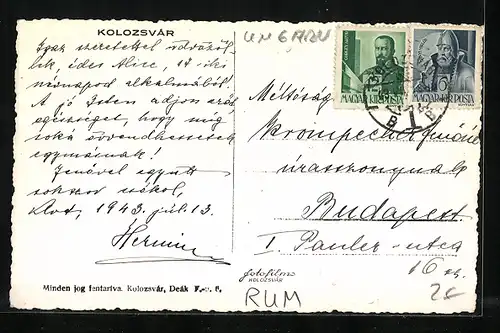 KOLOZSVÁR
UNGARN
Igaz szeretettel üdvözöl-
lek, édes Alice, 17-iki
névnapod alkalmából!
A jó Isten adjon erőt
egészséget, hogy még
soká örvendhessetek
egymásnak!
Jenővel együtt
sokszor csókol,
1943. júl. 13.
Hermin
Méltóság
Krompecher Jenőné
úrasszonynak
Budapest
I. Pauler-utca
16 sz.
MAGYAR KIR. POSTA
MAGYAR KIR. POSTA
fotofilm
KOLOZSVÁR
Minden jog fentartva. Kolozsvár, Deák F.-u. 6.
RUM